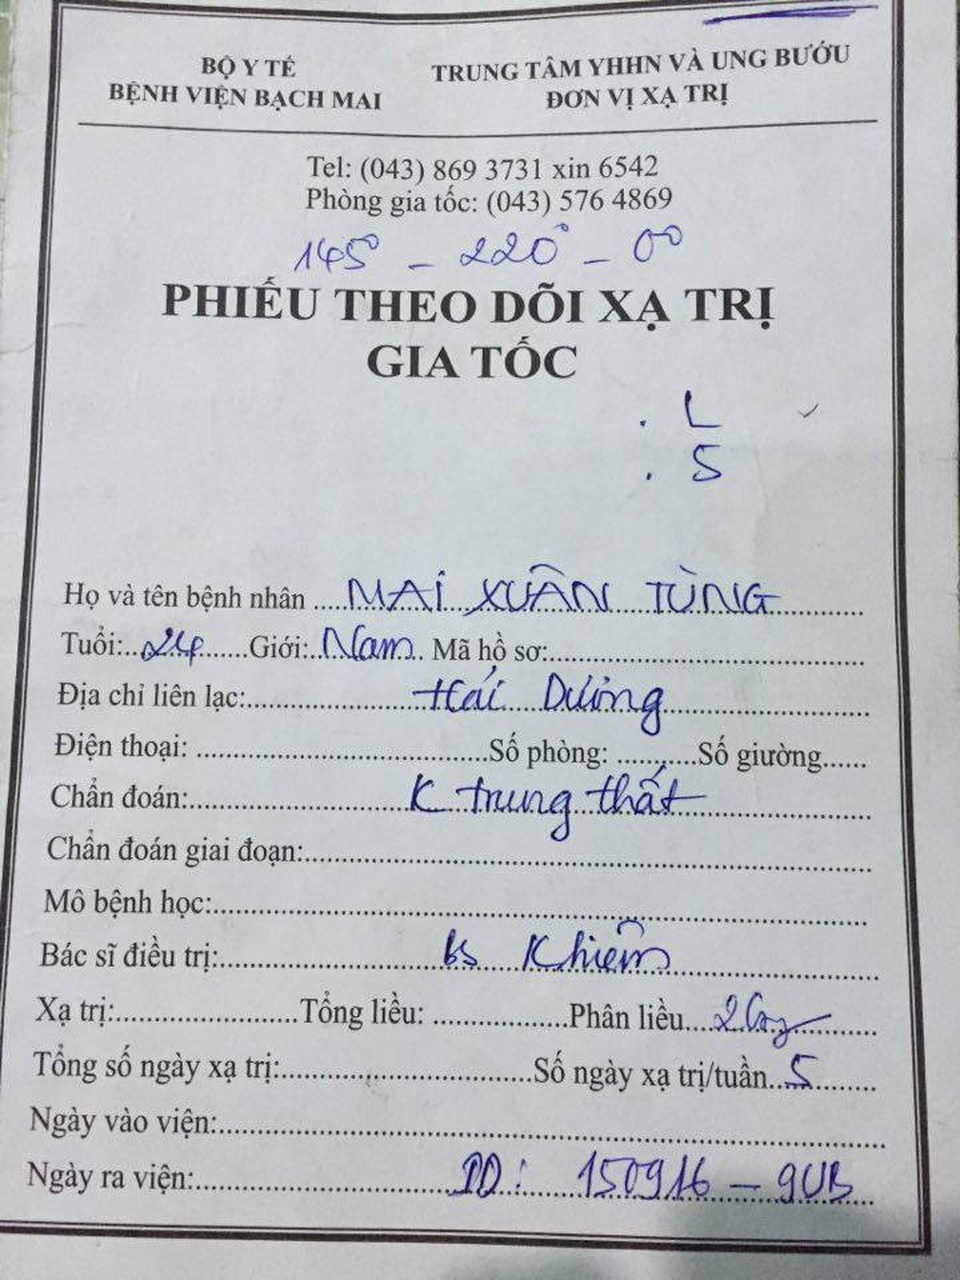 BỘ Y TẾ
BỆNH VIỆN BẠCH MAI
TRUNG TÂM YHHN VÀ UNG BƯỚU
ĐƠN VỊ XẠ TRỊ
Tel: (043) 869 3731 xin 6542
Phòng gia tốc: (043) 576 4869
145° - 220° - 0°
PHIẾU THEO DÕI XẠ TRỊ
GIA TỐC
. L
. S
Họ và tên bệnh nhân ....MAI XUÂN TÙNG..........
Tuổi:..24......Giới:..Nam.. Mã hồ sơ:..............................
Địa chỉ liên lạc:................Hải Dương....................
Điện thoại: ............................Số phòng: ........Số giường......
Chẩn đoán:....................K trung thất...............
Chẩn đoán giai đoạn:..............................
Mô bệnh học:..............................
Bác sĩ điều trị:....................bs Khiêm..................
Xạ trị:....................Tổng liều: ...............Phân liều....2Gy....
Tổng số ngày xạ trị:..........................Số ngày xạ trị/tuần..5........
Ngày vào viện:..............................
Ngày ra viện:....................ID: 150916 - 9UB